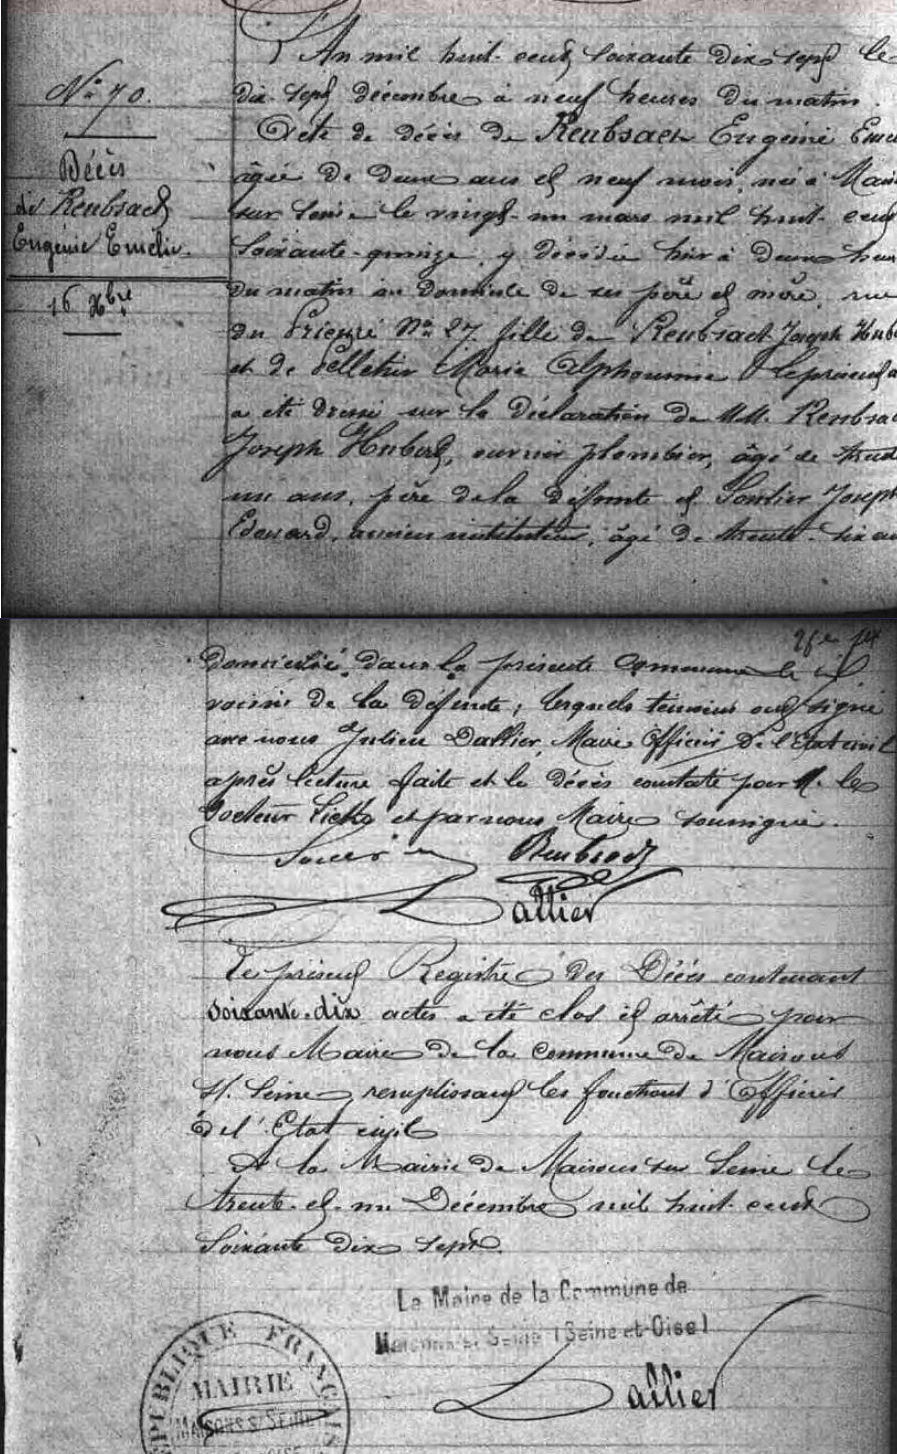 No 70.
Décès
de Reubsaet
Eugénie Emélie.
16 Xbre
L'An mil huit cent soixante dix sept le
dix-sept décembre à neuf heures du matin.
Acte de décès de Reubsaet Eugénie
âgée de deux ans et neuf mois, née à
sur Seine le vingt-un mars mil huit cent
soixante-quinze, y décédée hier à deux
du matin au domicile de ses père et mère, rue
du Prieuré No 27. fille de Reubsaet Joseph
et de Pelletier Marie Alphonsine le présent
a été dressé sur la déclaration de MM.
Joseph Hubert, ouvrier plombier, âgé de
un ans, père de la défunte et Joseph
Edouard, ancien instituteur, âgé de trente-six
domicilié dans la présente Commune le
voisin de la défunte; lesquels témoins ont signé
avec nous Julien Dallier, Maire Officier de l'Etat civil
après lecture faite et le décès constaté par M. le
Docteur et par nous Maire soussigné.
Reubsaet
Dallier
Le présent Registre des Décès contenant
soixante-dix actes a été clos et arrêté par
nous Maire de la Commune de Maisons
s/. Seine remplissant les fonctions d'Officier
de l'Etat civil
A la Mairie de Maisons sur Seine le
trente-et-un Décembre mil huit cent
soixante dix sept.
Le Maire de la Commune de
Maisons s/ Seine (Seine et-Oise)
Dallier
RÉPUBLIQUE FRANÇAISE
MAIRIE
MAISONS S/ SEINE